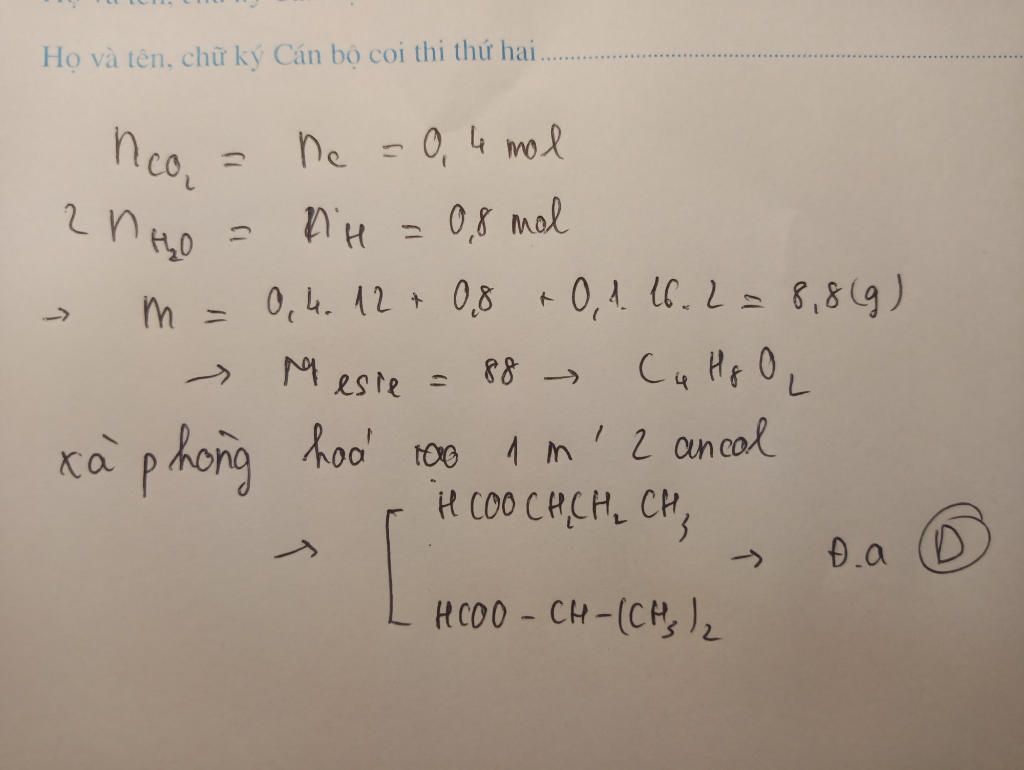 Họ và tên, chữ ký Cán bộ coi thi thứ hai
n_CO₂ = n_C = 0,4 mol
2 n_H₂O = n_H = 0,8 mol
→ m = 0,4. 12 + 0,8 + 0,1. 16. 2 = 8,8(g)
→ M este = 88 → C₄H₈O₂
xà phòng hoá 1 m' 2 ancol
→ [ HCOOCH₂CH₂CH₃
→ Đ.a D
HCOO - CH-(CH₃)₂